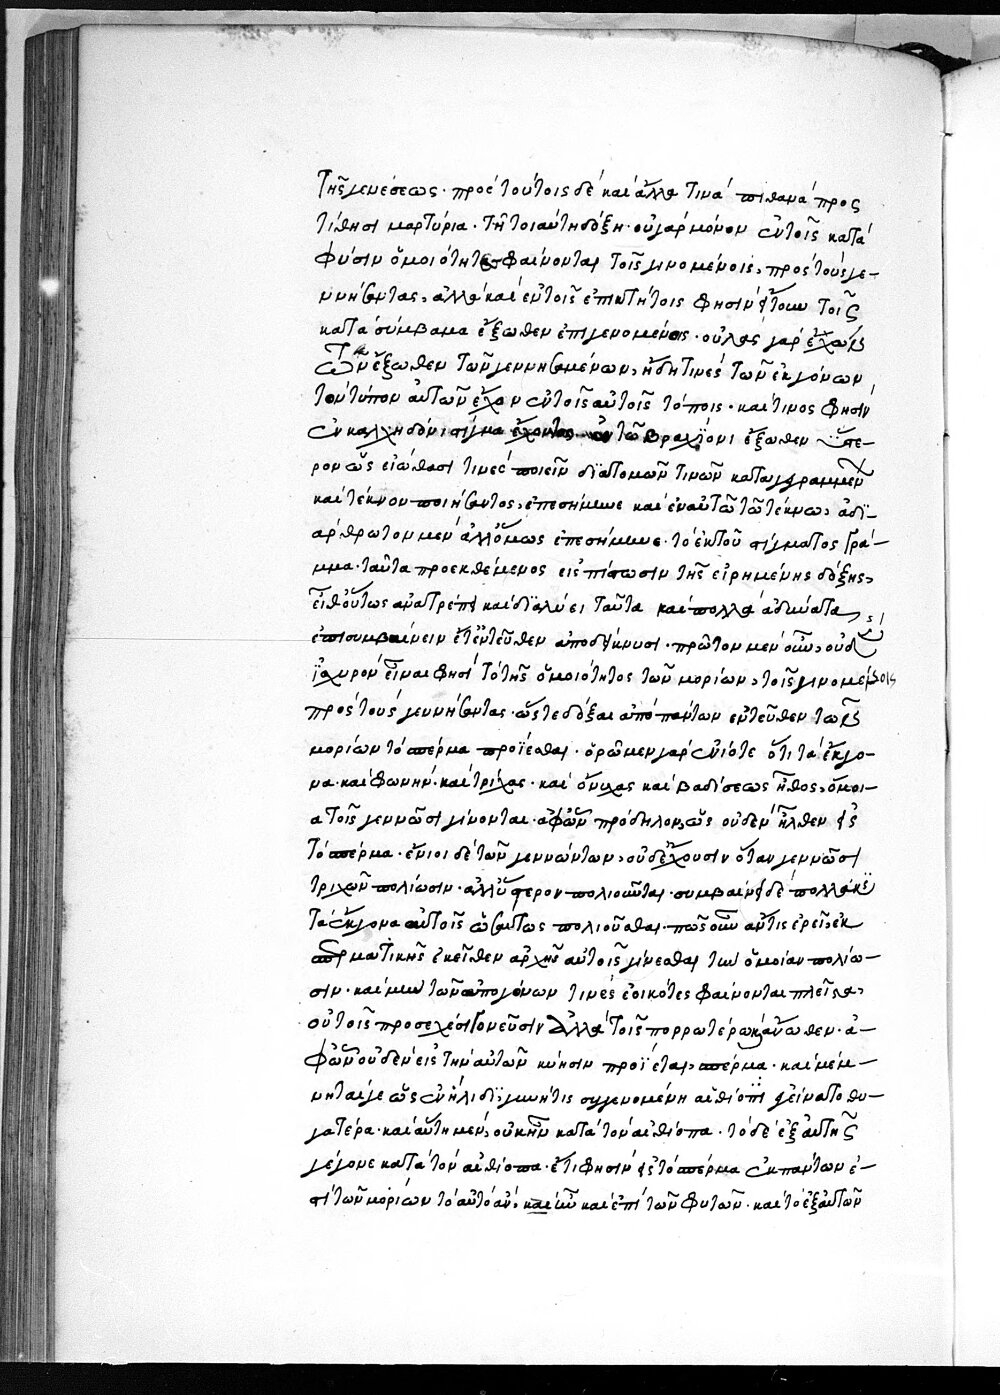 τῆς γενέσεως· προς τούτοις δὲ καὶ ἄλλα τινὰ πιθανὰ προς
τίθησι μαρτύρια. τῇ τοιαύτῃ δόξῃ· οὐ γὰρ μόνον ἐν τοῖς κατὰ
φύσιν ὅμοιότητες φαίνονται τοῖς γινομένοις, πρὸς τοὺς γε-
ννήσαντας, ἀλλὰ καὶ ἐν τοῖς ἐπικτήτοις φησὶν ἤτοι τοῖς
κατὰ σύμβαμα ἔξωθεν ἐπιγενομένοις· οὐλὰς γὰρ ἐχόντων
τῶν ἔξωθεν τῶν γεννησαμένων, ἤδη τινὲς τῶν ἐκγόνων
τὸν τύπον αὐτῶν ἔχον ἐν τοῖς αὐτοῖς τόποις· καὶ τινος φησὶν
ἐν καλχηδόνι στίγμα ἔχοντος ἐν τῶ βραχΐονι ἔξωθεν ὕστε-
ρον ὡς εἰώθασί τινες ποιεῖν διατομῶν τινῶν καταγραμμέν
καὶ τέκνον ποιήσαντος, ἐπεσήμηνε καὶ ἐν αὐτῶ τῶ τέκνω, ἀδϊ-
άρθρωτον μὲν ἀλλ' ὅμως ἐπεσήμηνε· τὸ ἐκ τοῦ στίγματος γρά-
μμα· ταῦτα προεκθέμενος εἰς πίστωσιν τῆς εἰρημένης δόξης,
εἶθ' οὕτως ἀνατρέπει καὶ διαλύει ταῦτα καὶ πολλὰ ἀδύνατα
ἐπισυμβαίνειν ἔτ' ἐντεῦθεν ἀποδείκνυσι· πρῶτον μὲν οὖν, οὐδ
ἰσχυρὸν εἶναι φησὶ τὸ τῆς ὅμοιότητος τῶν μορίων, τοῖς γινομένοις
πρὸς τοὺς γεννήσαντας· ὥστε δόξαι ἀπὸ πάντων ἐντεῦθεν τῶν
μορίων τὸ σπέρμα προΐεσθαι· ὁρῶμεν γὰρ ἐνίοτε ὅτι τὰ ἔκγο-
να καὶ φωνὴν· καὶ τρίχας· καὶ ὄνυχας καὶ βαδίσεως ἦθος, ὅμοι-
α τοῖς γεννῶσι γίνονται· ἀφ' ὧν πρόδηλον, ὡς οὐδὲν ἦλθεν εἰς
τὸ σπέρμα· ἔνιοι δὲ τῶν γεννώντων, οὐδ' ἔχουσιν ὅταν γεννῶσι
τριχῶν πολίωσιν· ἀλλ' ὕστερον πολιοῦνται· συμβαίνει δὲ πολλάκις
τὰ ἔκγονα αὐτοῖς ὡσαύτως πολιοῦσθαι· πῶς οὖν ἄν τις ἐρεῖ, ἐκ
σπερματικῆς ἐκεῖθεν ἀρχῆς αὐτοῖς γίνεσθαι τὴν ὅμοίαν πολίω-
σιν· καὶ μὴν τῶν ἀπογόνων τινὲς ἐοικότες φαίνονται πλεῖστα,
οὐ τοῖς προσεχέσι γονεῦσιν ἀλλὰ τοῖς πορρωτέρω καὶ ἄνωθεν· ἀ-
φ' ὧν οὐδὲν εἰς τὴν αὐτῶν κύησιν προΐεται, σπέρμα· καὶ μέμ-
νηταί γε ὡς ἐν ἤλιδι γυνή τις συγγενομένη αἰθίοπι γείνατο θυ-
γατέρα· καὶ αὕτη μὲν, οὐκ ἦν κατὰ τὸν αἰθίοπα. τὸ δὲ ἐξ αὐτῆς
γέγονε κατὰ τὸν αἰθίοπα· ἔτι φησὶν εἰ τὸ σπέρμα ἐκ πάντων ἐ-
στὶ τῶν μορίων τὸ αὐτὸ ἀν, καὶ εἰ καὶ ἐπὶ τῶν φυτῶν· καὶ τὸ ἐξ αὐτῶν